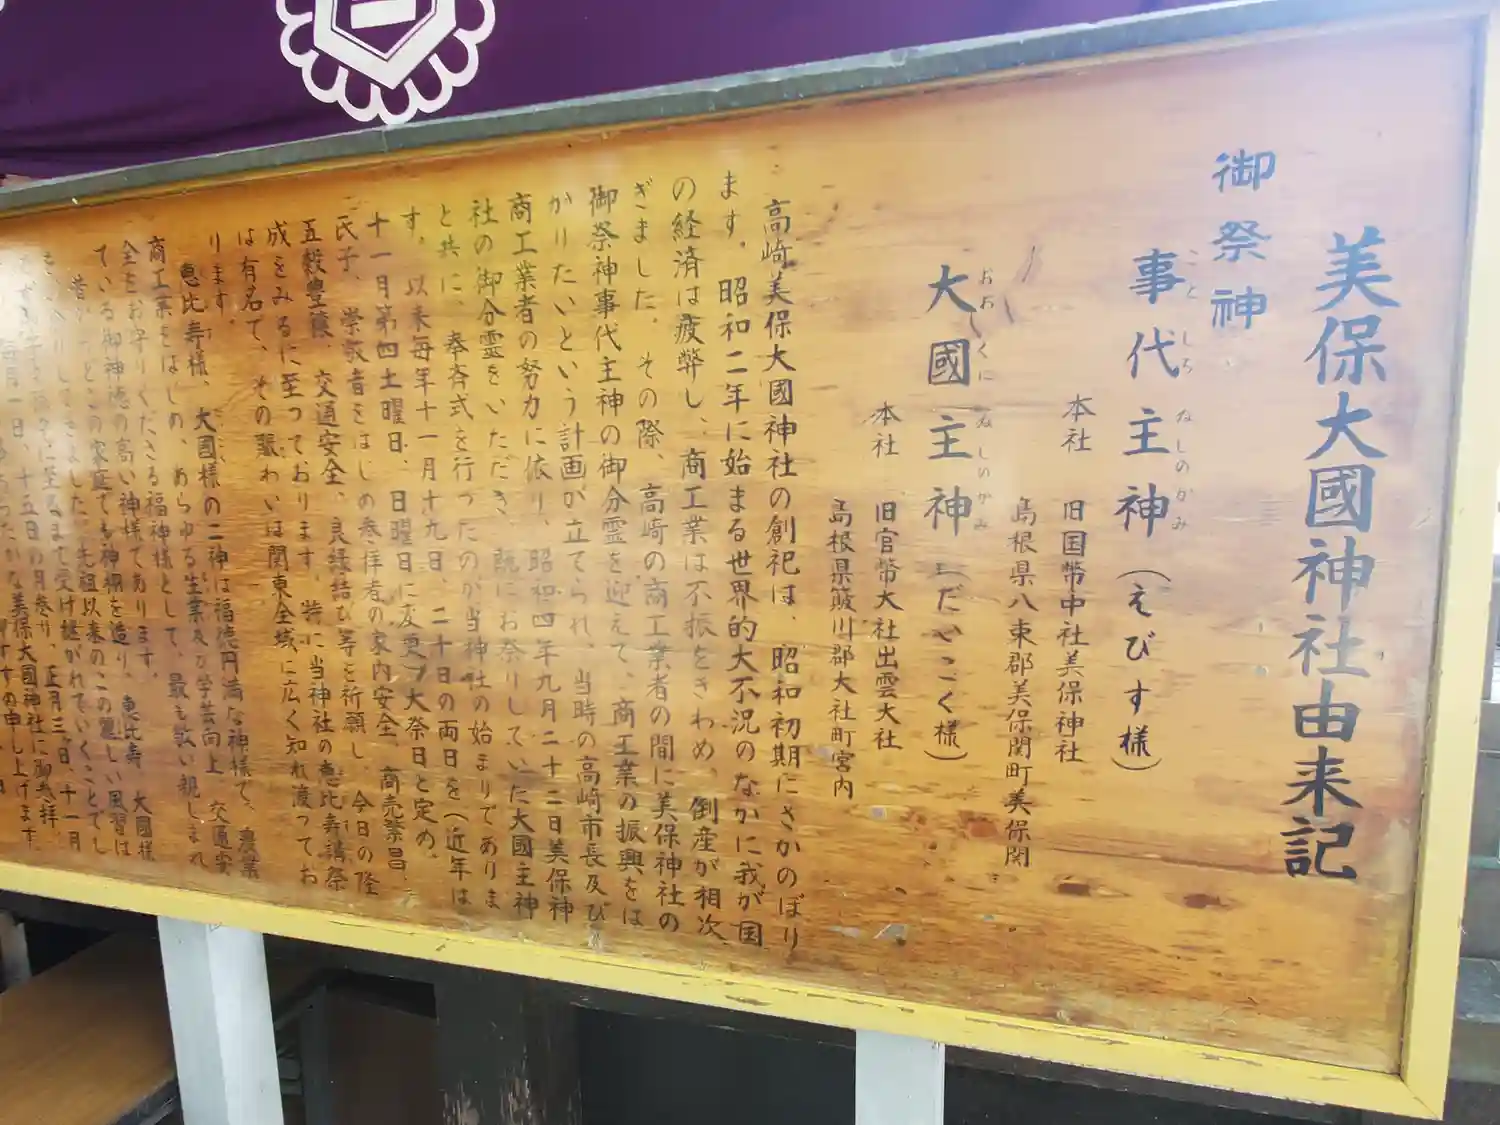 美保大國神社由来記
御祭神
事代主神（えびす様）
ことしろぬしのかみ
本社 旧国幣中社美保神社
島根県八束郡美保関町美保関
大國主神（だいこく様）
おおくにぬしのかみ
本社 旧官幣大社出雲大社
島根県簸川郡大社町宮内
高崎美保大國神社の創祀は、昭和初期にさかのぼり
ます。昭和二年に始まる世界的大不況のなかに我が国
の経済は疲弊し、商工業は不振をきわめ、倒産が相次
ぎました。その際、高崎の商工業者の間に美保神社の
御祭神事代主神の御分霊を迎えて、商工業の振興をは
かりたいという計画が立てられ、当時の高崎市長及び
商工業者の努力に依り、昭和四年九月二十二日美保神
社の御分霊をいただき、既にお祭りしていた大國主神
と共に、奉斉式を行ったのが当神社の始まりでありま
す。以来毎年十一月十九日、二十日の両日を（近年は
十一月第四土曜日、日曜日に変更）大祭日と定め、
氏子、崇敬者をはじめ参拝者の家内安全、商売繁昌
五穀豊穣、交通安全、良縁結び等を祈願し、今日の隆
成をみるに至っております。特に当神社の恵比寿講祭
は有名で、その賑わいは関東全域に広く知れ渡ってお
ります。
恵比寿様、大國様の二神は福徳円満な神様で、農業
商工業をはじめ、あらゆる生業及び学芸向上 交通安
全をお守りくださる福神様として、最も敬い親しまれ
ている御神徳の高い神様であります。
昔からどこの家庭でも神棚を造り、恵比寿 大國様
先祖以来のこの麗しい風習は
受け継がれていくことでし
美保大國神社に御参拝
毎月一日、十五日の月参り、正月三日、十一月